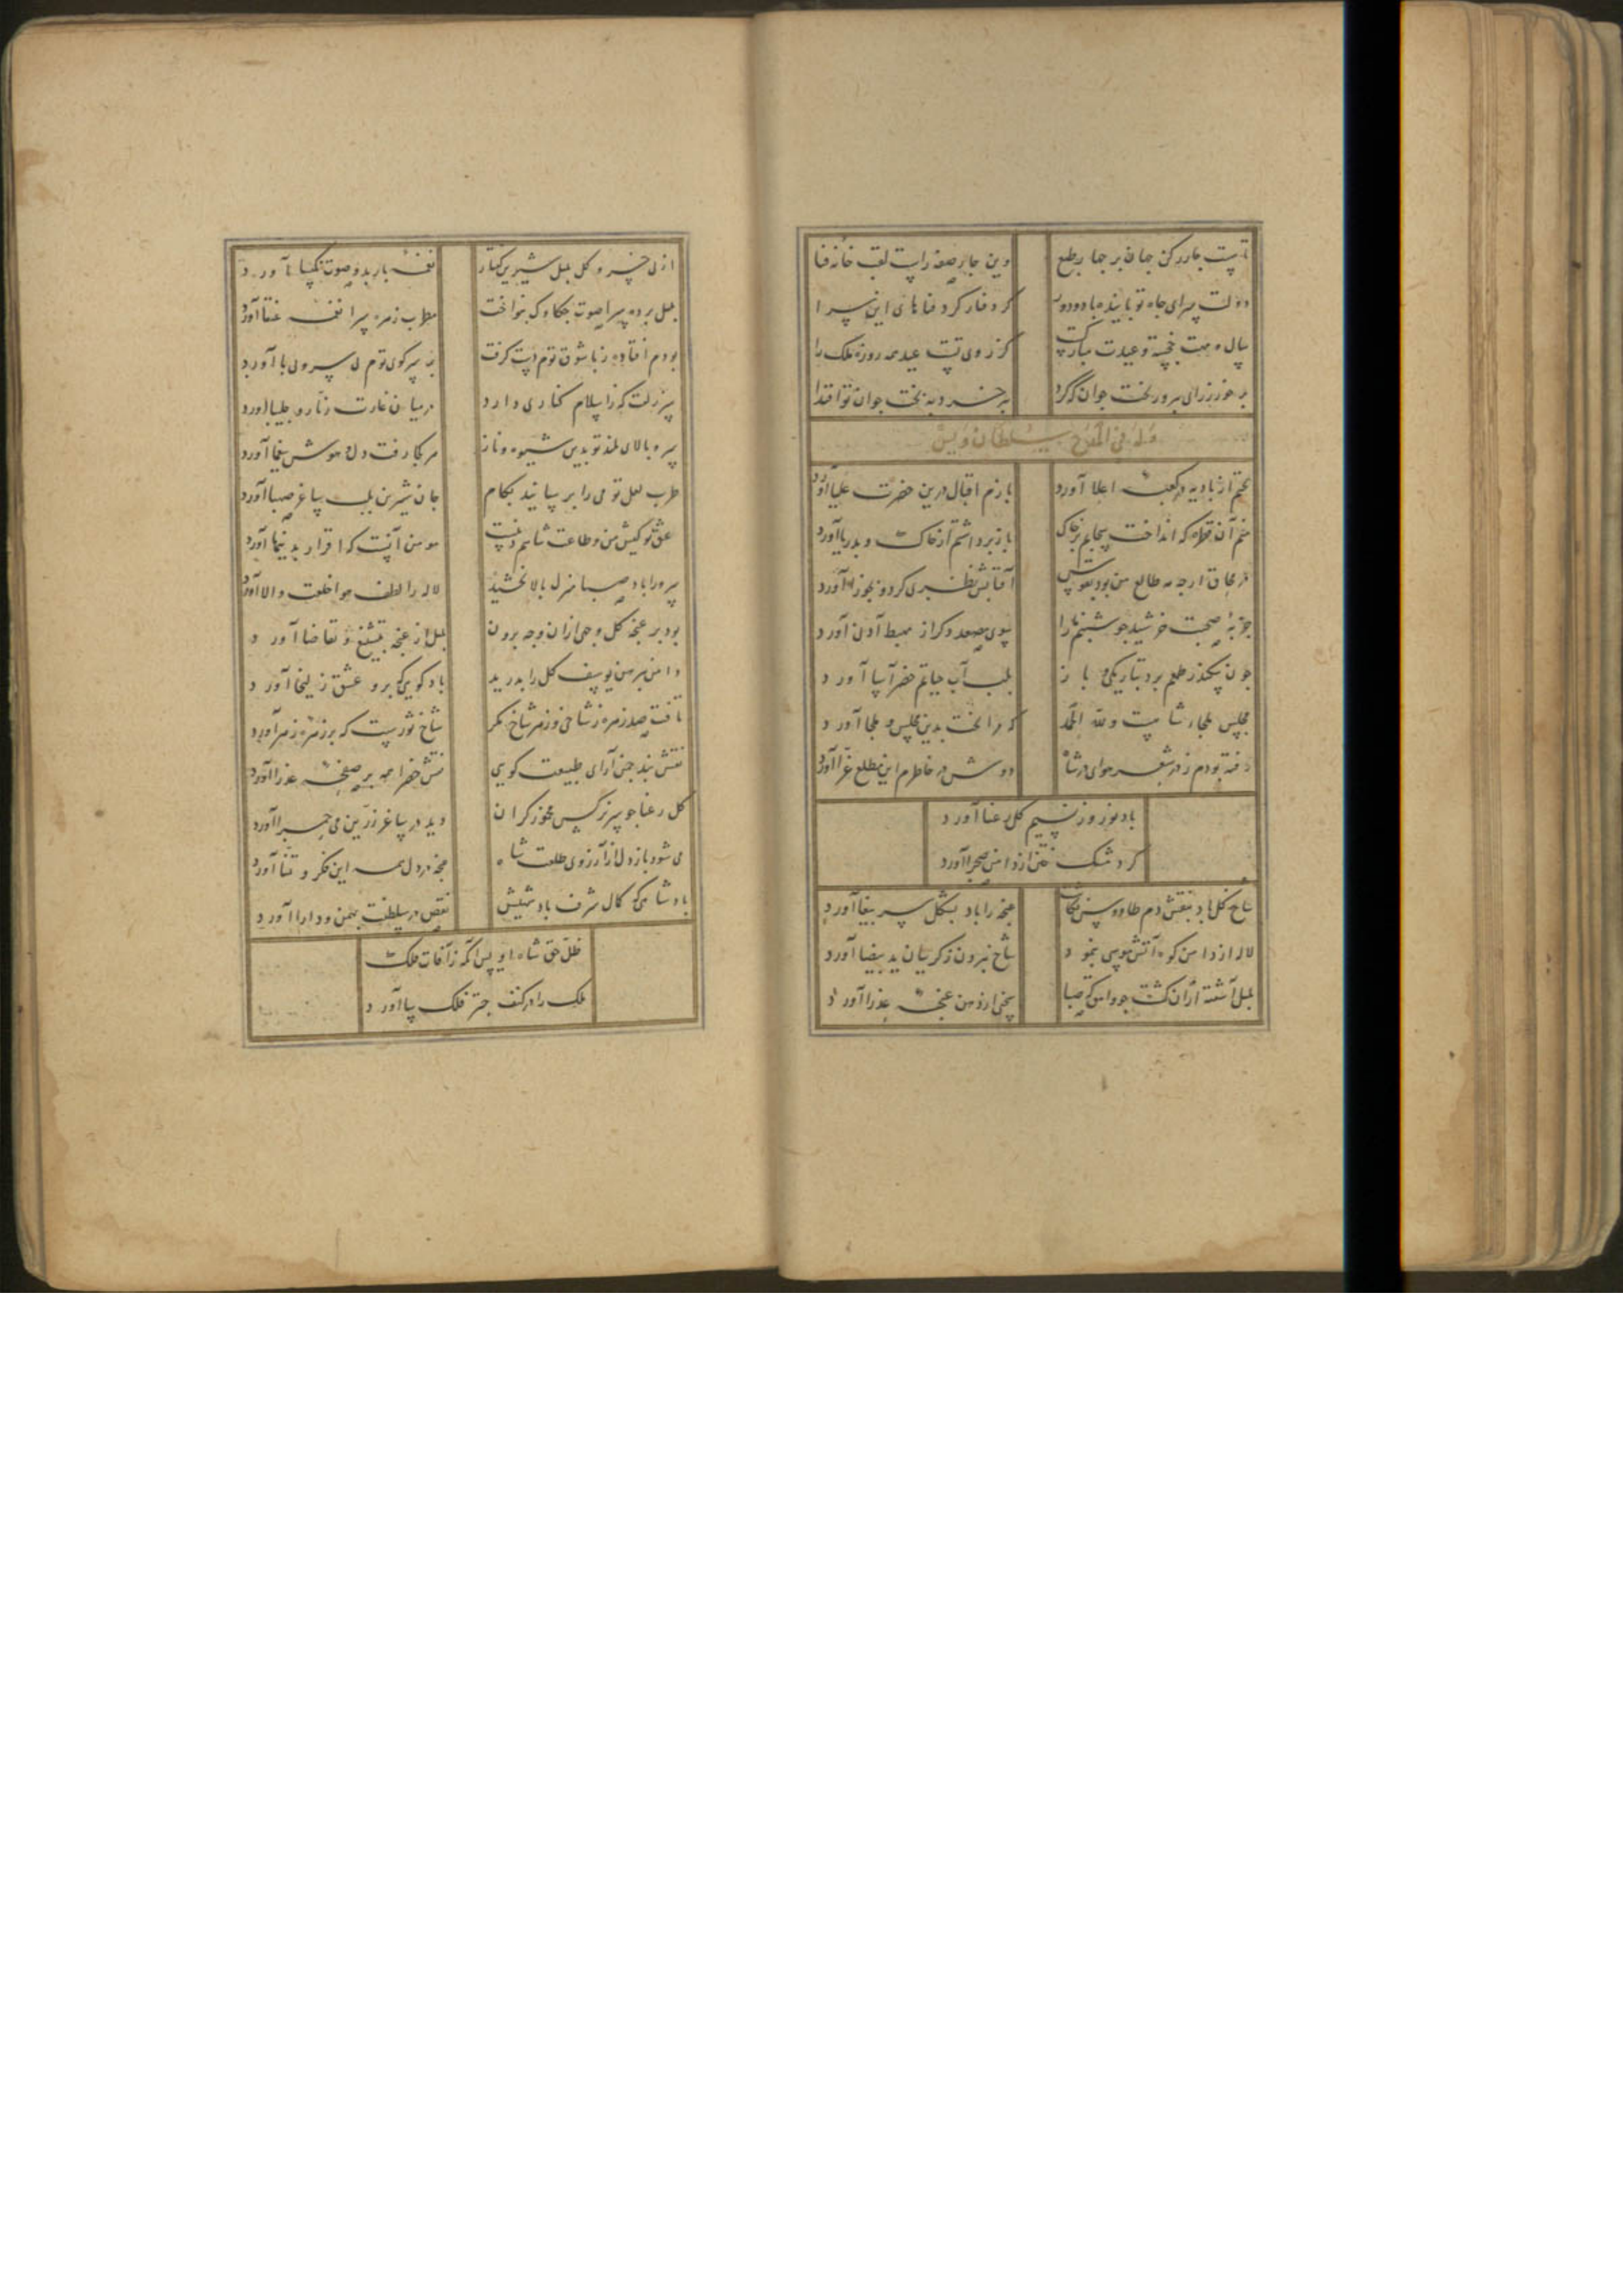 تا هست چار رکن جهان بر چهار طبع وین چار صفه راست لقب خانه فنا
دولت سرای جاه تو پاینده باد و دور کرد فنا های این سرا
سال و مهت خجسته و عیدت مبارکست کز روی تست عید همه روزه ملک را
بر خور ز رای پیر و ز بخت جوان که کرد پیر خرد به بخت جوان تو اقتدا
وله فی المدح سلطان ویس
بختم از بادیه در کعبه اعلا آورد بازم اقبال درین حضرت علیا آورد
منم آن قطره که انداخت سحابم بر خاک باز برداشتم از خاک و بدریا آورد
در محاق ارچه مه طالع من بود آفتابش نظری کرد و بجوزا آورد
جذبه صحبت خرشید چو شبنم ما را سوی مصعد دکر از مهبط ادنی آورد
چون سکندر ظلم برد بتاریکی و باز بلب آب حیاتم خضر آسا آورد
مجلس ملجاء شاهیست و لله الحمد که مرا بخت بدین مجلس و ملجا آورد
رفته بودم ز در شعر هوای در شاه دوش در خاطرم این مطلع غرا آورد
باد نوروز نسیم کل رعنا آورد
کرد مشک ختن از دامن صحرا آورد
شاخ کل باد بنقش دم طاووس غنچه را باد بشکل سر ببغا آورد
لاله از دامن کوه آتش موسی بنمود شاخ بیرون ز کریبان ید بیضا آورد
بلبل آشفته ازان کشت چو وامق که صبا سخنی از دهن غنچه عذرا آورد
از پی خسرو کل بلبل شیرین کفتار نغمه باربد و صوت نکیسا آورد
بلبل پرده سرا صوت چکاوک بنواخت مطرب زهره سرا نغمه عنقا آورد
بودم افتاده ز پا شوق توم دست کرفت بر سر کوی توم بی سر و بی پا آورد
سر زلفت که ز اسلام کناری دارد در میان غارت زنار و چلیپا آورد
سرو بالای بلند تو بدین شیوه و ناز هر کجا رفت دل و هوش بیغما آورد
طرب لعل تو می را برسانید بکام جان شیرین بلب ساغر صهبا آورد
عشق تو کیش من و طاعت شاهم دینست مومن آنست که اقرار بدینها آورد
سرو را باد صبا منزل بالا بخشید لاله را لطف هوا خلعت والا آورد
بود بر غنچه کل وجهی ازان وجه برون بلبل از غنچه بتشنیع و تقاضا آورد
دامن پیرهن یوسف کل را بدرید باد کویی که برو عشق زلیخا آورد
تافت صد زهره ز شاخی و ز هر شاخ نکر شاخ ثورست که بر زهره زهرا آورد
نقش بند چمن آرای طبیعت کویی نقش خضرا همه بر صفحه عذرا آورد
کل رعنا چو سر نرکس مخمور کران دید در ساغر زرین می حمرا آورد
می شود باز دل از آرزوی طلعت شاه غنچه در دل همه این فکر و تمنا آورد
پادشاهی که کمال شرف بادشهیش نقص در سلطنت بهمن و دارا آورد
ظل حق شاه اویس آنکه ز آفات فلک
ملک را در کنف چتر فلک سا آورد